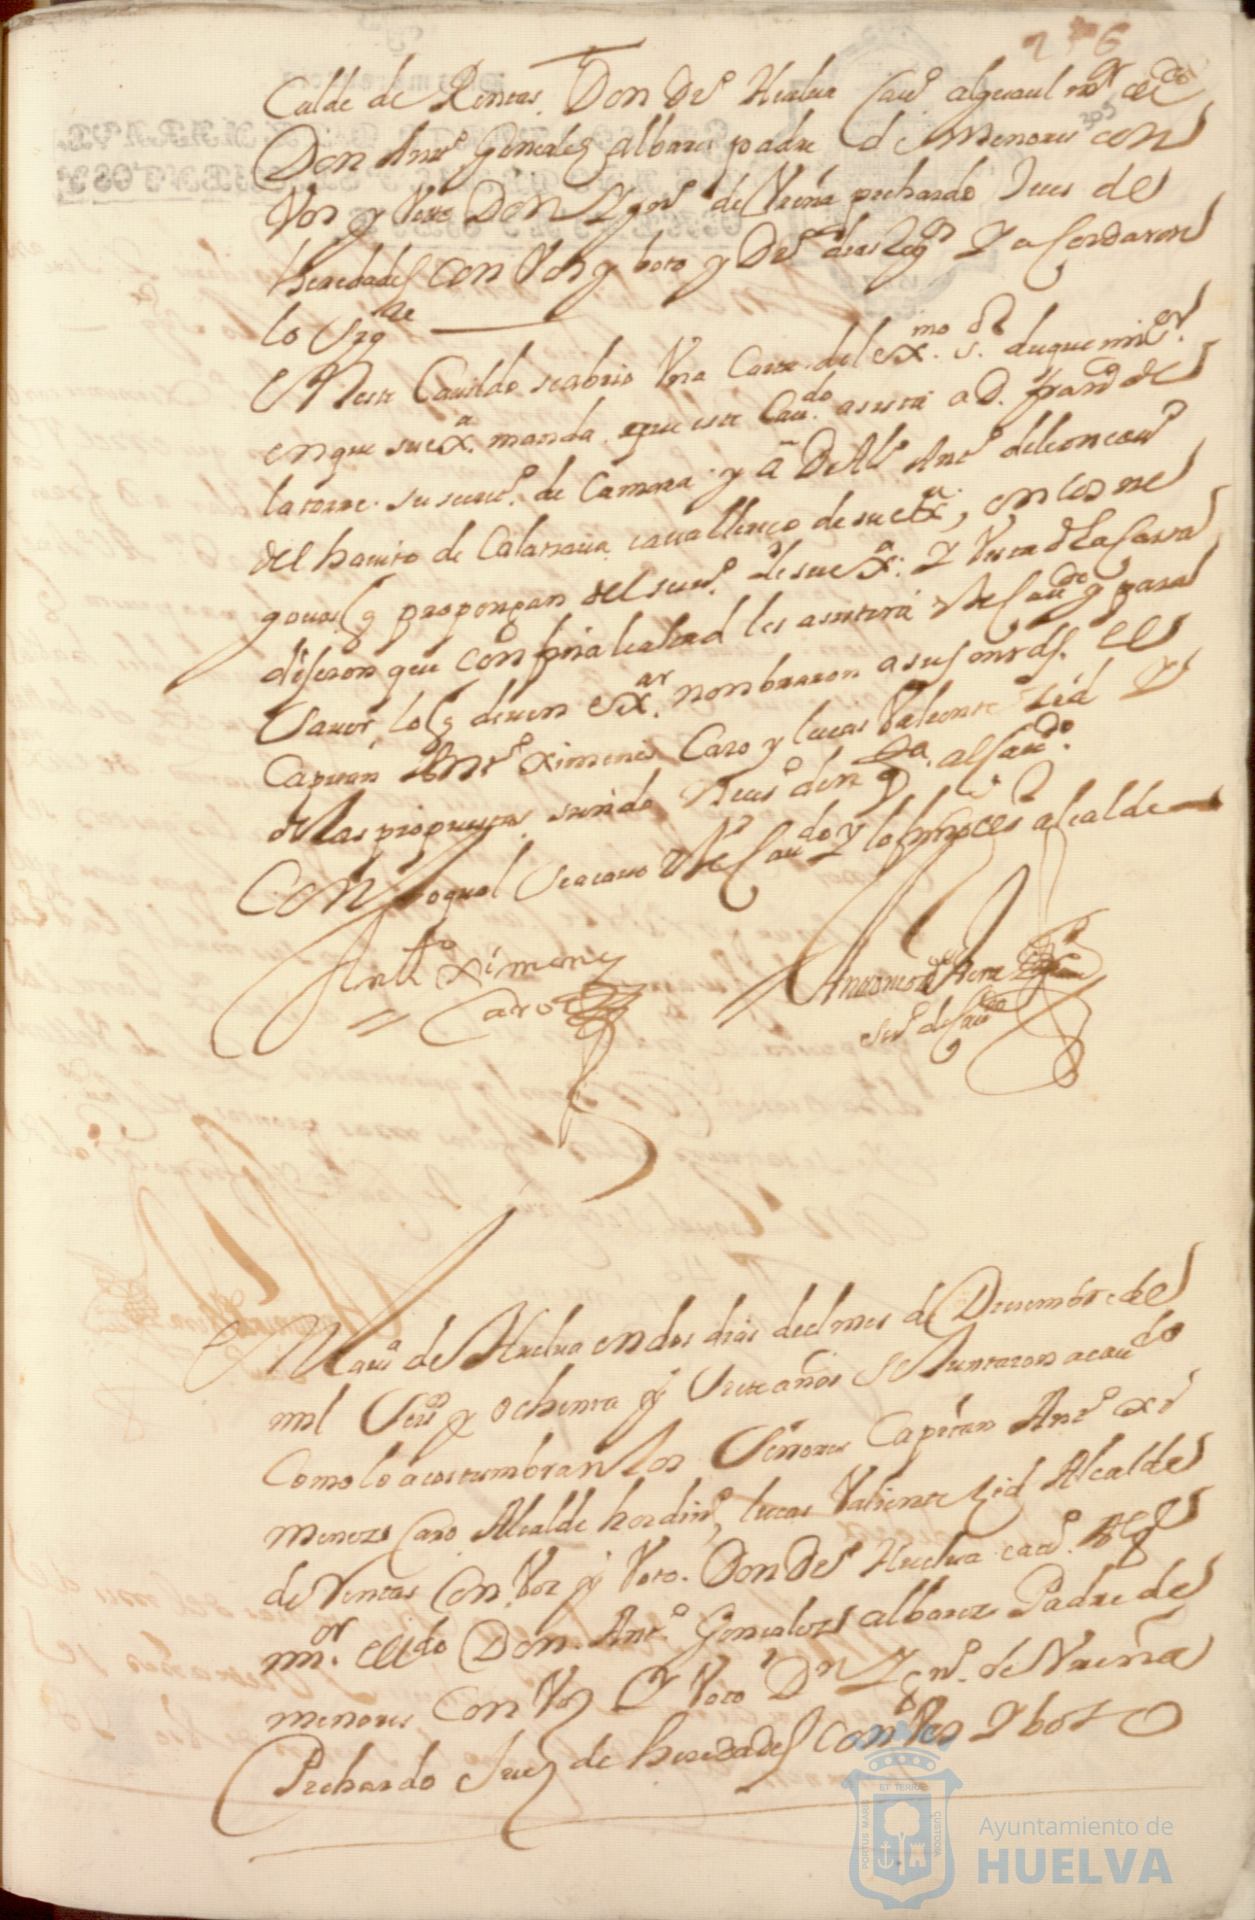 276
205
Calde de Rentas Don Dº Huelua Cauº alguacil mºr
Don Antº Gonzales Albares padre de Menores con
Voz y Voto Don Ygnº de Vreña pichardo Juez de
heredades con Voz y boto y Dº dias Y acordaron
lo Sigte
En este Cauildo se abrio Vna Carta del exmo. s. duque mi sor.
en que su exa. manda que este Caudo. asista a D. franco de
la torre su secreto. de Camara y a D Alº Antº de leon cauº
del hauito de Calatraua cauallerico de su exa, en los ne
gocios q propongan del seruº. de su exa. Y Vista la Carta
dijeron que con fina lealtad les asistira este Caudo y para
Sauer lo q deuen nonbraron a sus mrds. el
Capitan Antº Ximenes Caro y lucas Valiente Zid
de las propuestas siendo den qta. al Caudo.
Con lo qual se acauo este Caudo y lo firmo el sr alcalde
Antº Ximenes
Caro
Antonio de
Sº de Caudo
En la uª de Huelua en dos dias del mes de Disiembre de
mil Seisº y ochenta y Siete años se Juntaron a caudo
Como lo acostumbran los Señores Capitan Antº xi
menez Caro Alcalde hordinº, lucas Valiente Zid Alcalde
de Rentas Con Voz y Voto. Don Dº Huelua cauº. Alg
mor. elldo Don. Antº. Gonzalez albarez Padre de
menores Con Voz Y Voto Dn Ygnº. de Vreña
Pichardo Juez de heredades con Vos Y boto
PORTUS MARIS ET TERRAE CUSTODIA
Ayuntamiento de
HUELVA